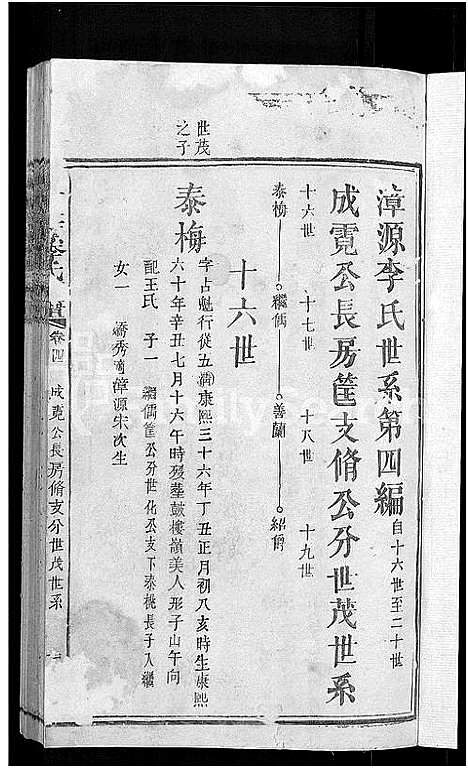 漳源李氏世系第四編 自十六世至二十世
成霓公長房筐支脩公分世茂世系
十六世 十七世 十八世 十九世
泰梅 繼儒 善蘭 紹爵
十六世
世茂之子
泰梅 字占魁行從五清康熙三十六年丁丑正月初八亥時生康熙
六十年辛丑七月十六午時歿塟鼓樓嶺美人形子山午向
配王氏 子一 繼儒筐公分世化公支下泰桃長子入繼
女一 嬌秀適漳源宋次生
卷四 成霓公長房脩支分世茂世系